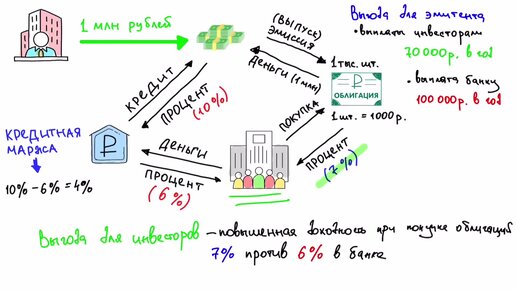 1 млн рублей
(выпуск)
эмиссия
деньги (1 млн)
Выгода для эмитента
• выплаты инвесторам
70 000 р. в год
• выплата банку
100 000 р. в год
1 тыс. шт.
ОБЛИГАЦИЯ
1 шт. = 1000 р.
кредит
процент
(10%)
покупка
процент
(7%)
кредитная
маржа
10% – 6% = 4%
деньги
процент
(6%)
Выгода для инвесторов – повышенная доходность при покупке облигаций
7% против 6% в банке